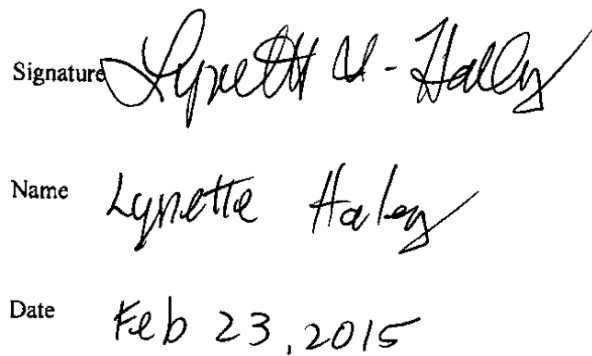 Signature Lynett U - Haley
Name Lynette Haley
Date Feb 23, 2015